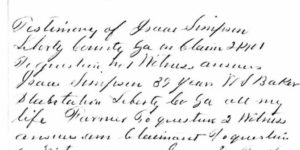 Testimony of Isaac Simpson
Liberty County Ga in Claim 21401
To question No 1 Witness answers
Isaac Simpson 39 years W S Baker
Plantation Liberty Co Ga all my
life Farmer To question 2 Witness
answers am Claimant To question